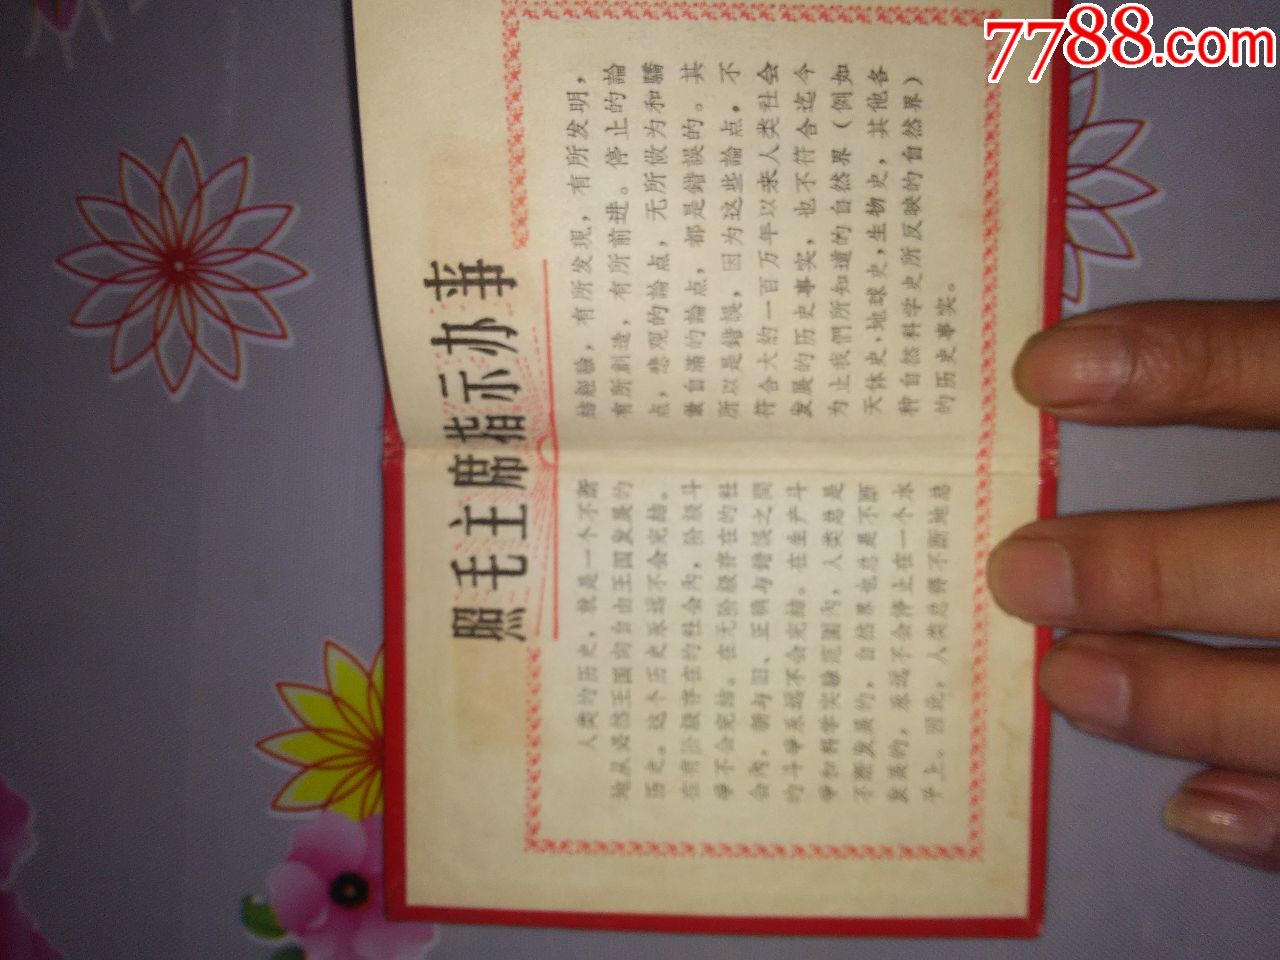 7788.com
照毛主席指示办事
人类的历史，就是一个不断
地从必然王国向自由王国发展的
历史。这个历史永远不会完结。
在有阶級存在的社会內，阶級斗
爭不会完结。在无阶級存在的社
会內，新与旧、正确与錯誤之間
的斗爭永远不会完结。在生产斗
爭和科学实驗范圍內，人类总是
不断发展的，自然界也总是不断
发展的，永远不会停止在一个水
平上。因此，人类总得不断地总
结經驗，有所发現，有所发明，
有所創造，有所前进。停止的論
点，悲观的論点，无所做为和驕
傲自滿的論点，都是錯誤的。其
所以是錯誤，因为这些論点，不
符合大約一百万年以来人类社会
发展的历史事实，也不符合迄今
为止我們所知道的自然界（例如
天体史，地球史，生物史，其他各
种自然科学史所反映的自然界）
的历史事实。